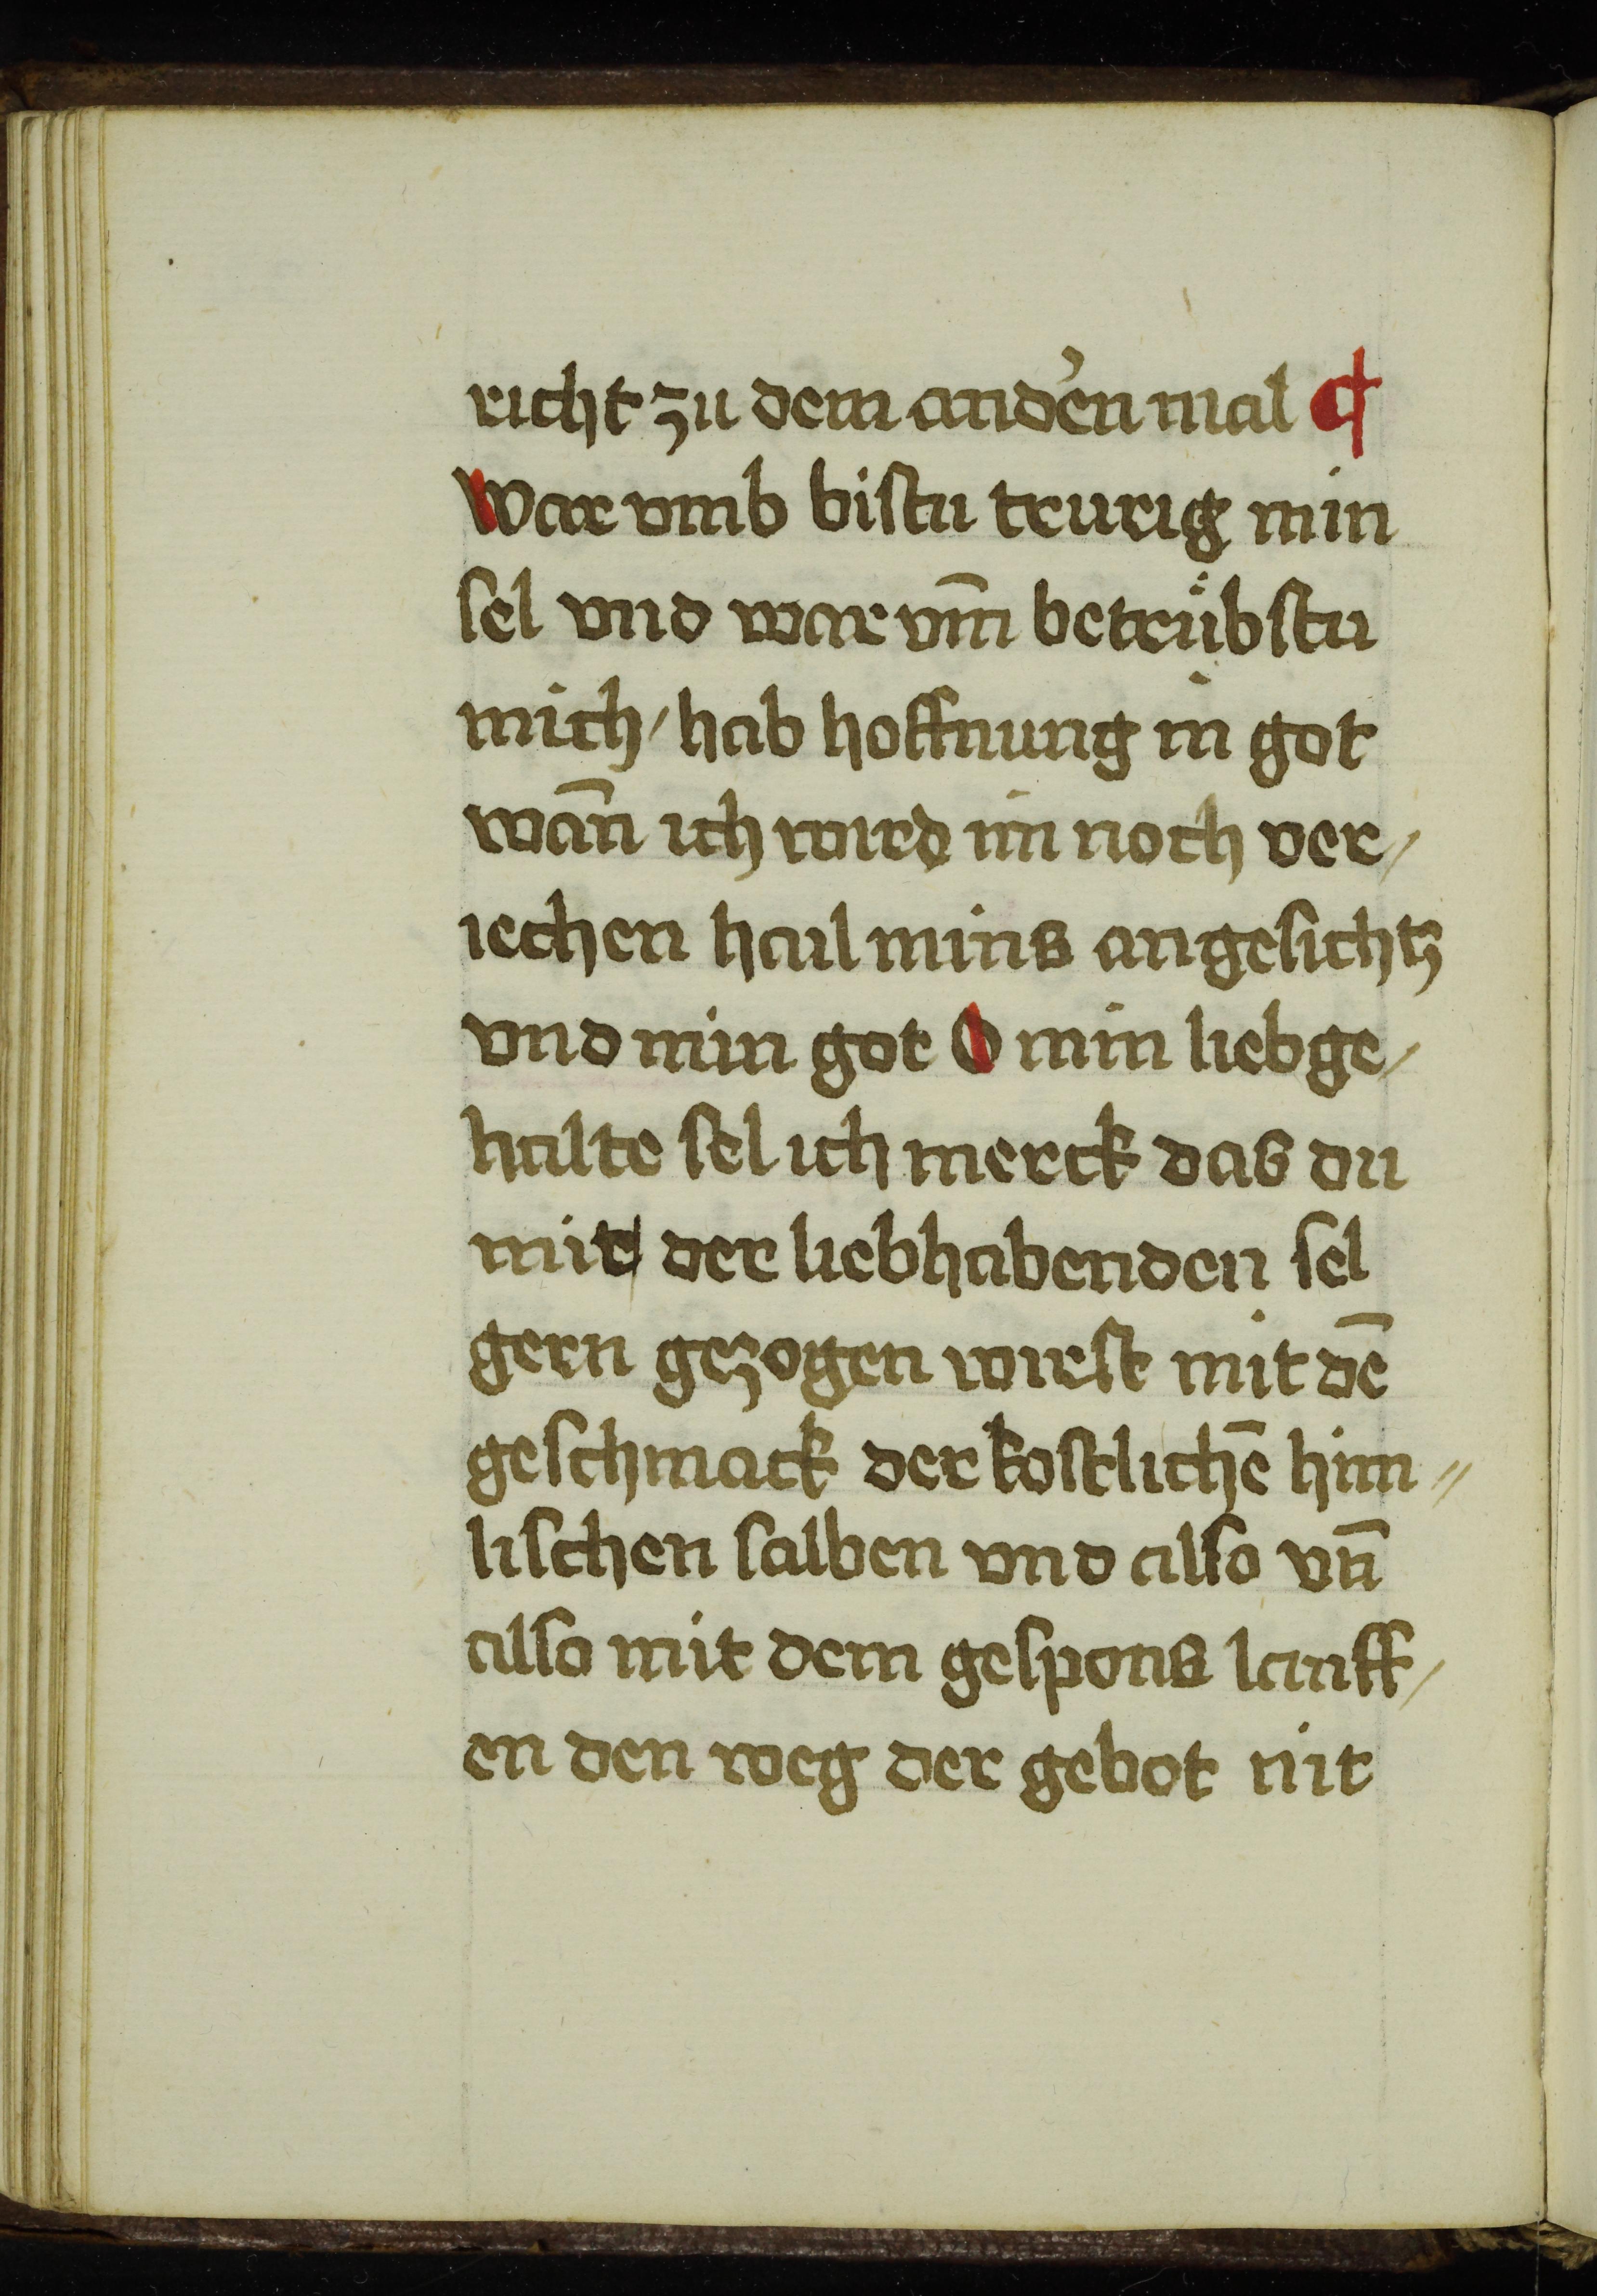 richt zu dem and̾en mal ¶
War vmb bistu trurig min
sel vnd war vm̄ betrůbstu
mich / hab hoffnung in got
wan̄ ich wird im noch ver /
iechen hail mins angesichtz
vnd min got O min liebge /
halte sel ich merck das du
mit der liebhabenden sel
gern gezogen wirst mit dē
geschmack der kostlichē him //
lischen salben vnd also vn̄
also mit dem gespons lauff /
en den weg der gebot nit